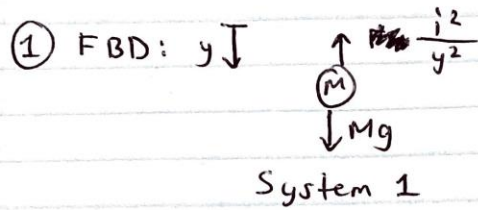 ① FBD: y i²/y²
M
Mg
System 1